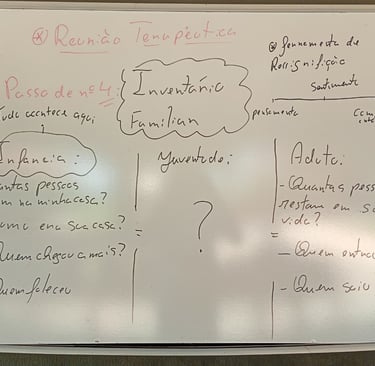 ⊗ Reunião Terapêutica
⊗ ferramenta de
Ressignificação
Sentimento
pensamento
Com
Passo de nº 4:
Inventário
Familiar
Tudo acontece aqui
Infância:
antas pessoas
m na minha casa?
ama era sua casa?
Quem chegou a mais?
Quem faleceu
Juventude:
?
Adulta:
- Quantas pess
restam em s
vida?
=
- Quem entrou
- Quem saiu
=